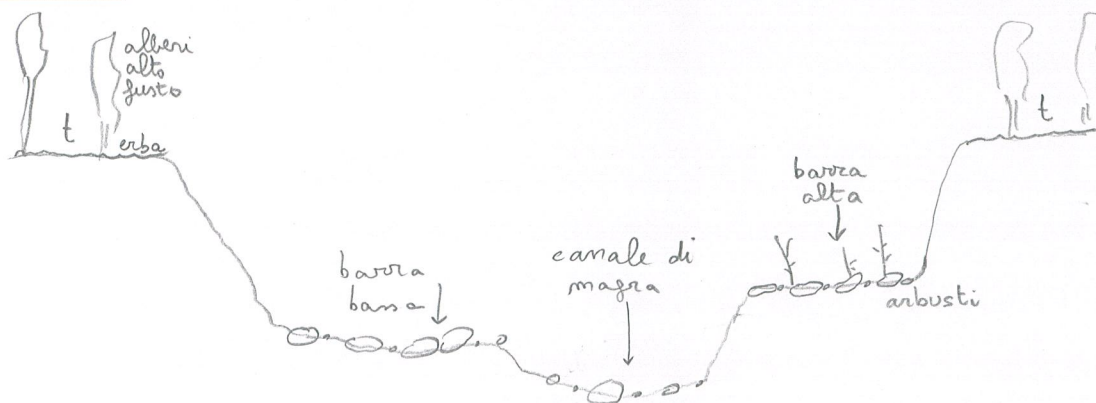 alberi
alto
fusto
t
erba
t
barra
alta
canale di
magra
barra
bassa
arbusti